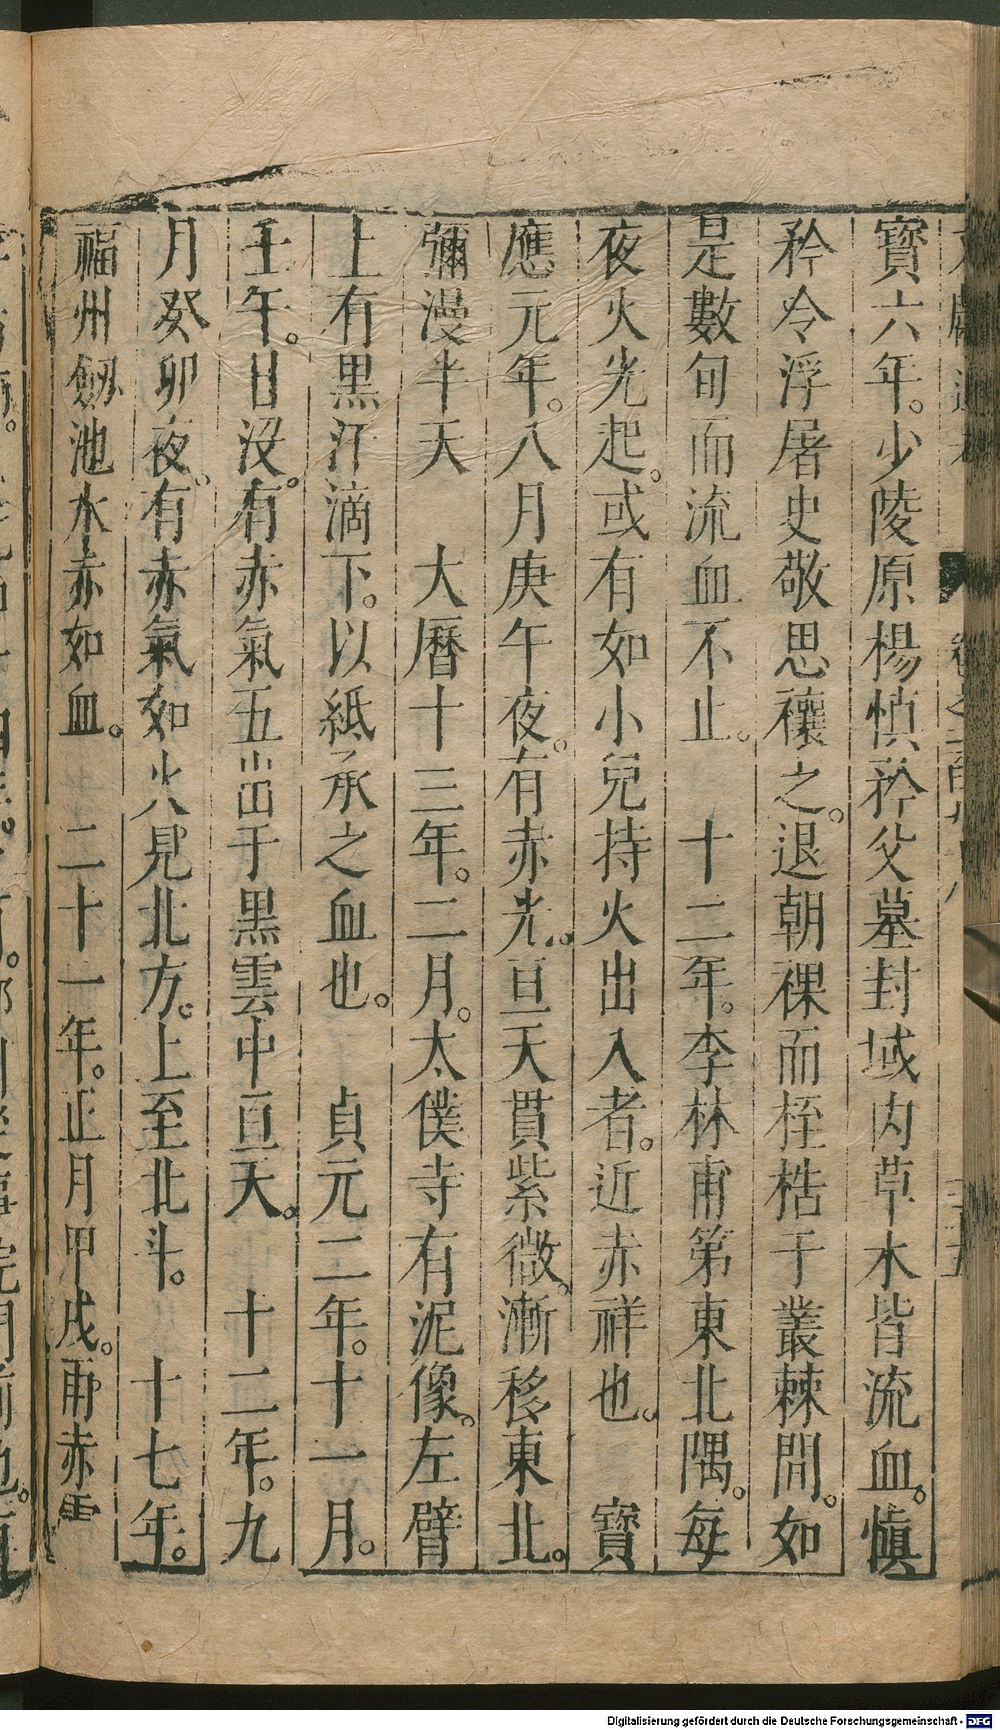 寶六年。少陵原楊慎矜父墓封域内草水皆流血。慎
矜令浮屠史敬思禳之。退朝裸而桎梏于叢棘間。如
是數旬而流血不止。　十二年。李林甫第東北隅。每
夜火光起。或有如小兒持火出入者。近赤祥也。　寶
應元年。八月庚午夜。有赤光。亘天貫紫微。漸移東北。
彌漫半天　大曆十三年。二月。太僕寺有泥像。左臂
上有黑汗滴下。以紙承之血也。　貞元二年。十一月。
壬午。日没。有赤氣五出于黑雲中亘天。　十二年。九
月癸卯夜。有赤氣如火見北方。上至北斗。　十七年。
福州劒池水赤如血。　二十一年。正月甲戌。雨赤雪
Digitalisierung gefördert durch die Deutsche Forschungsgemeinschaft - DFG